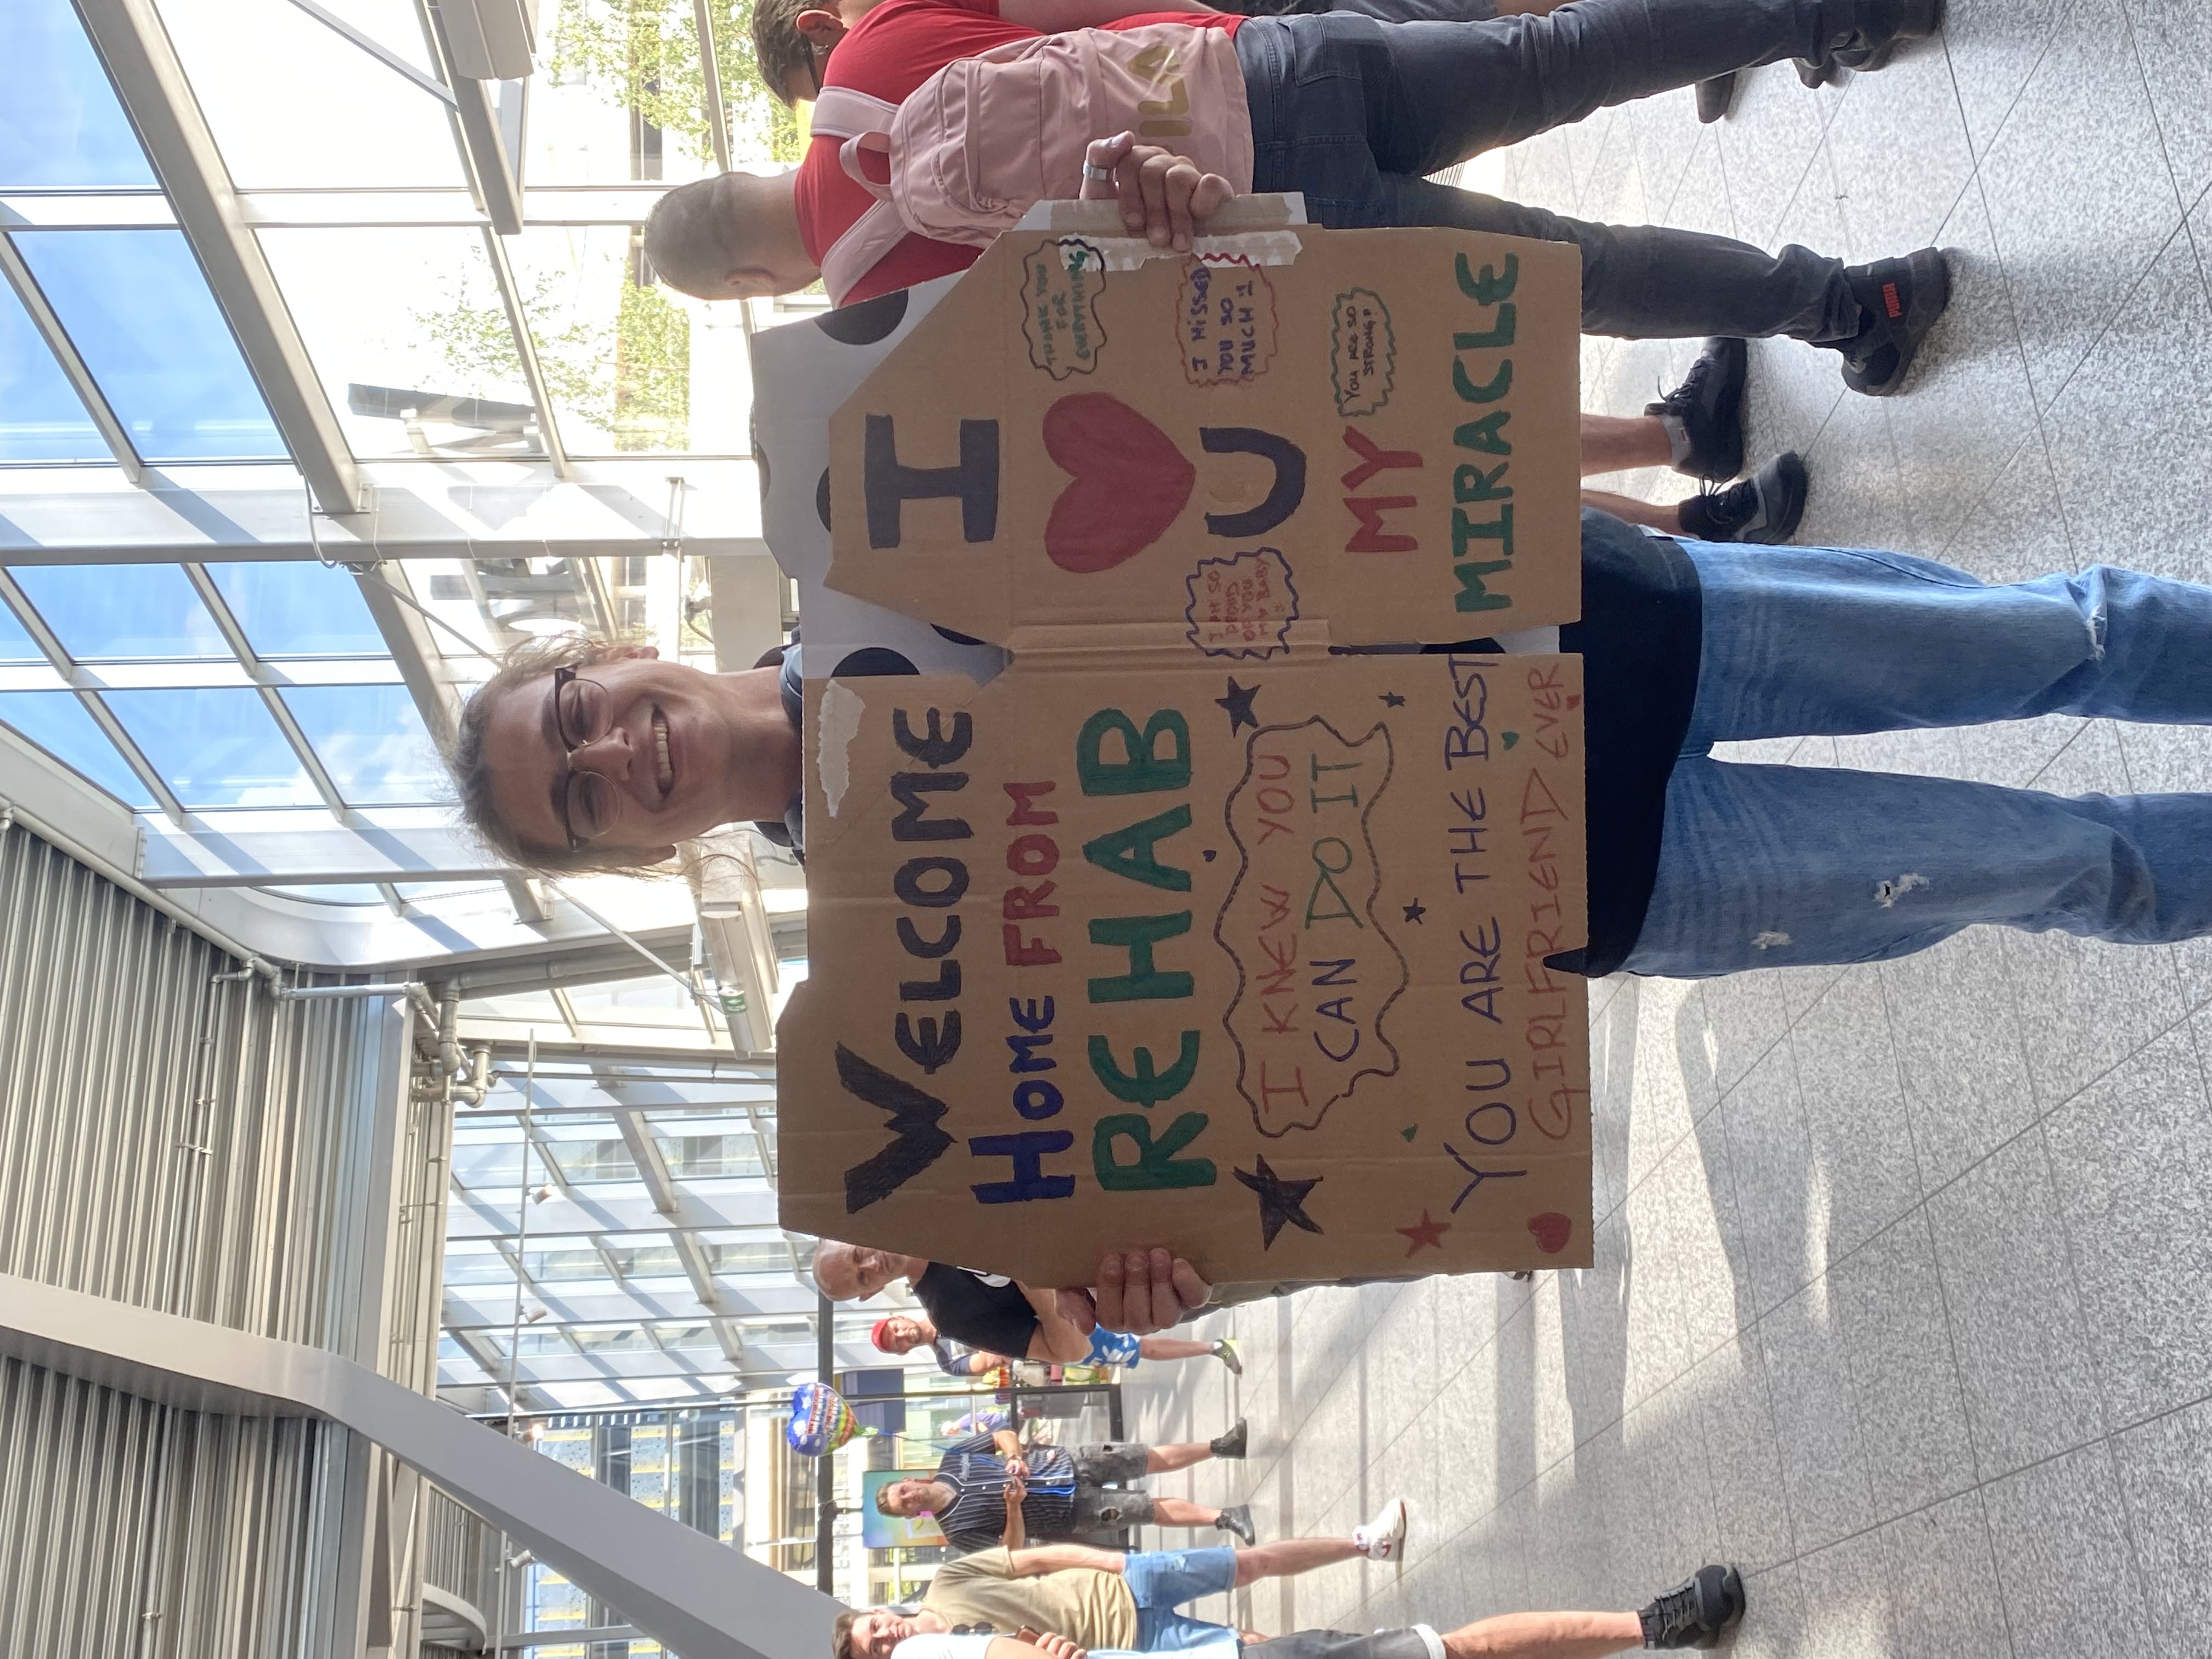 WELCOME
HOME FROM
REHAB
I KNEW YOU
CAN DO IT
YOU ARE THE BEST
GIRLFRIEND EVER
I
♥
U
MY
MIRACLE
THANK YOU
FOR
EVERYTHING
I AM SO
PROUD
OF YOU
MY BABY
I MISSED
YOU SO
MUCH
YOU ARE SO
STRONG!
ILA
PUMA